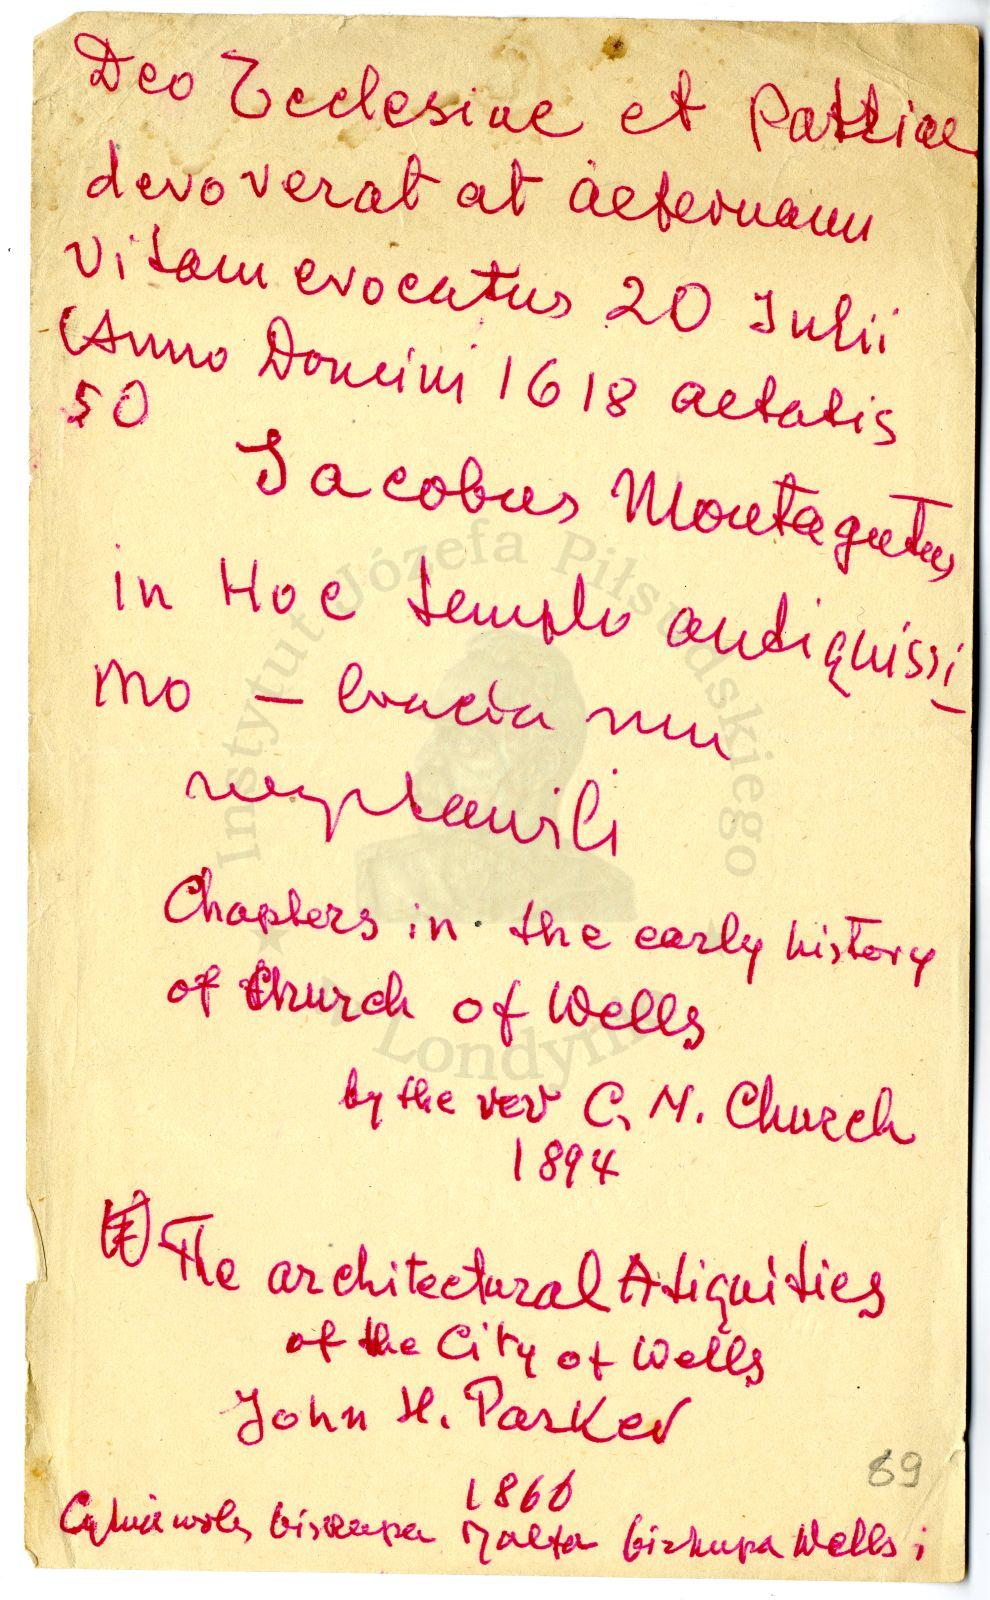 Deo Ecclesiae et Patriae
devoverat at aeternam
vitam evocatus 20 Julii
Anno Domini 1618 aetatis
50
Jacobus Montagutus
in Hoc templo antiquissi
mo – bracia mu
wystawili
Chapters in the early history
of Church of Wells
by the rev C. M. Church
1894
The architectural Atiquities
of the City of Wells
John H. Parker
1866
biskupa Wells i
89
Instytut Józefa Piłsudskiego
w Londynie